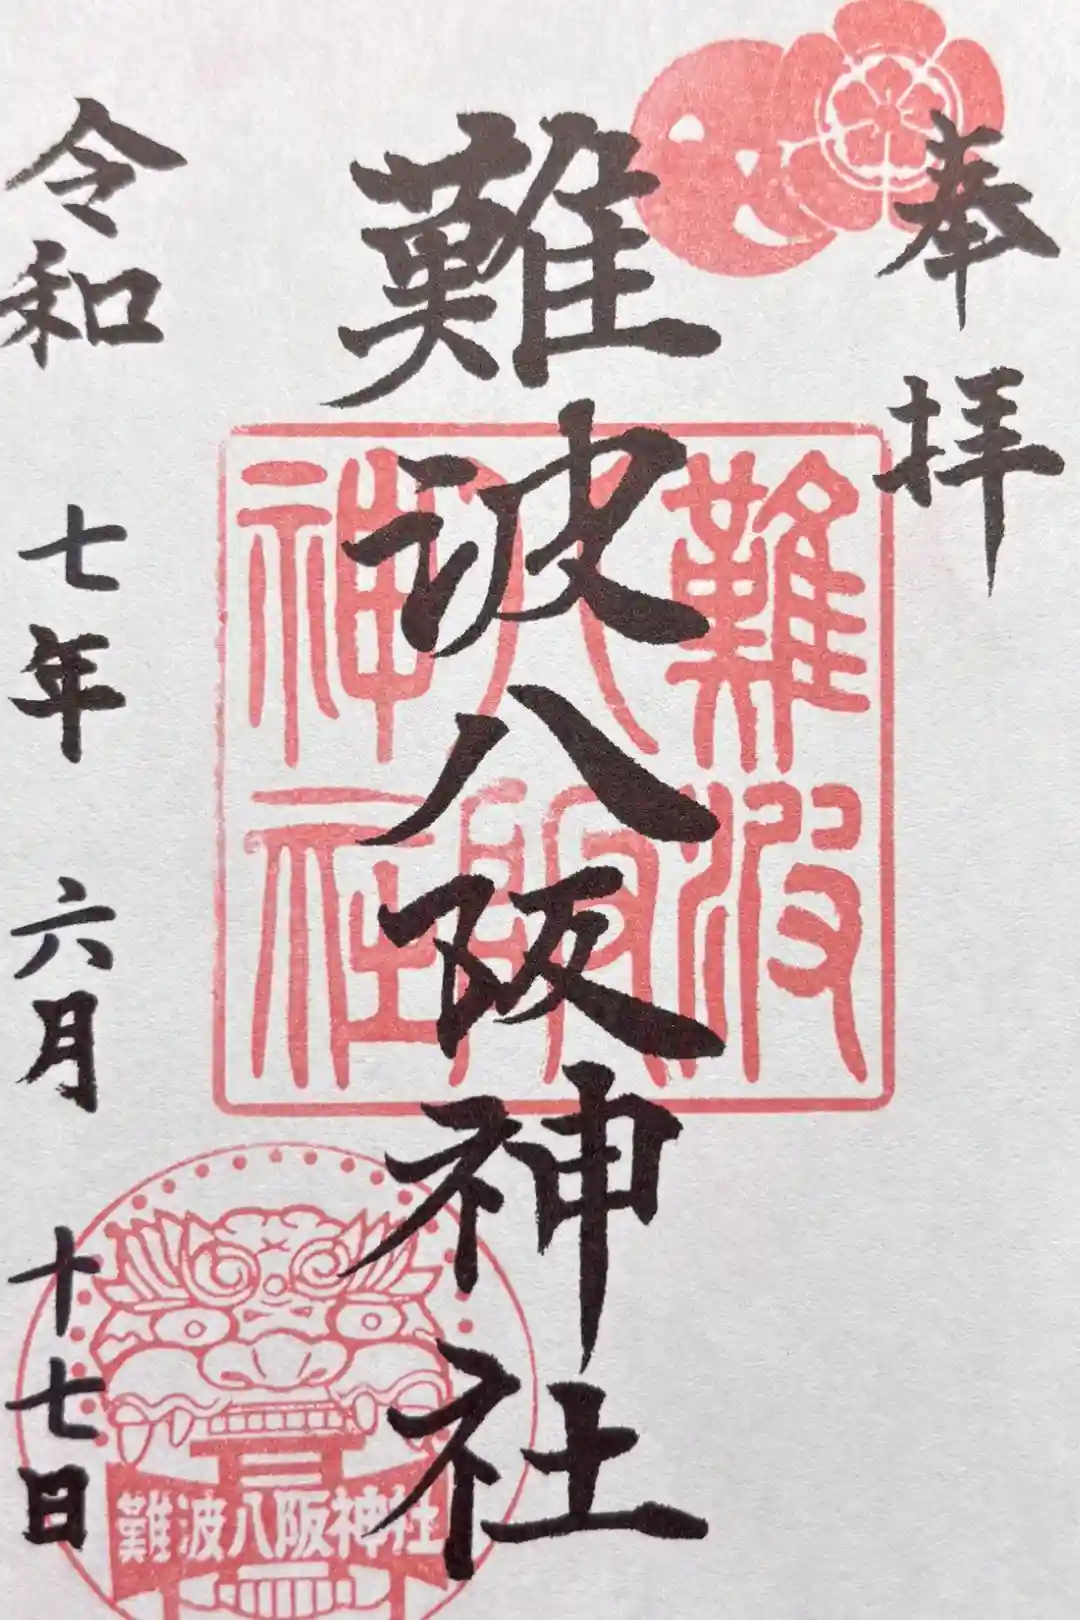 奉拝
難波八阪神社
令和七年六月十七日
難波
八阪
神社
難波八阪神社